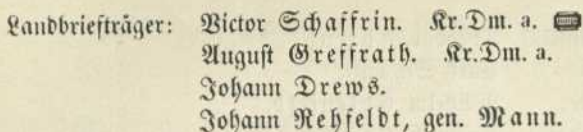 Landbriefträger: Victor Schaffrin. Kr.Dm. a.
August Greffrath. Kr.Dm. a.
Johann Drews.
Johann Rehfeldt, gen. Mann.